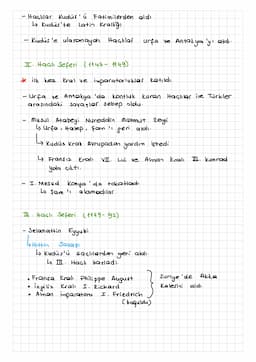 - Haçlılar Kudüs'ü Fatimilerden aldı
↳ Kudüs'te Latin Krallığı
- Kudüs'e ulaşamayan Haçlılar Urfa ve Antakya'yı aldı.
II. Haçlı Seferi (1147-1149)
* ilk kez kral ve imparatorluklar katıldı
- Urfa ve Antakya'da kontluk kuran Haçlılar ile Türkler
arasındaki savaşlar sebep oldu.
- Musul Atabeyi Nureddin Mahmut Zengi
↳ Urfa, Halep, Şam'ı geri aldı.
↳ Kudüs Kralı Avrupadan yardım istedi
↳ Fransa Kralı VII. Lui ve Alman Kralı III. Konrad
yola çıktı.
- I. Mesud Konya'da
↳ Şam'ı alamadılar
III. Haçlı Seferi (1189-92)
- Selahattin Eyyubi
↳ Hıttin Savaşı
↳ Kudüs'ü haçlılardan geri aldı
↳ III. Haçlı başladı
• Fransa Kralı Philippe August
• İngiliz Kralı I. Richard
• Alman İmparatoru I. Friedrich
(boğuldu)
Suriye'de Akka
Kalesini aldı